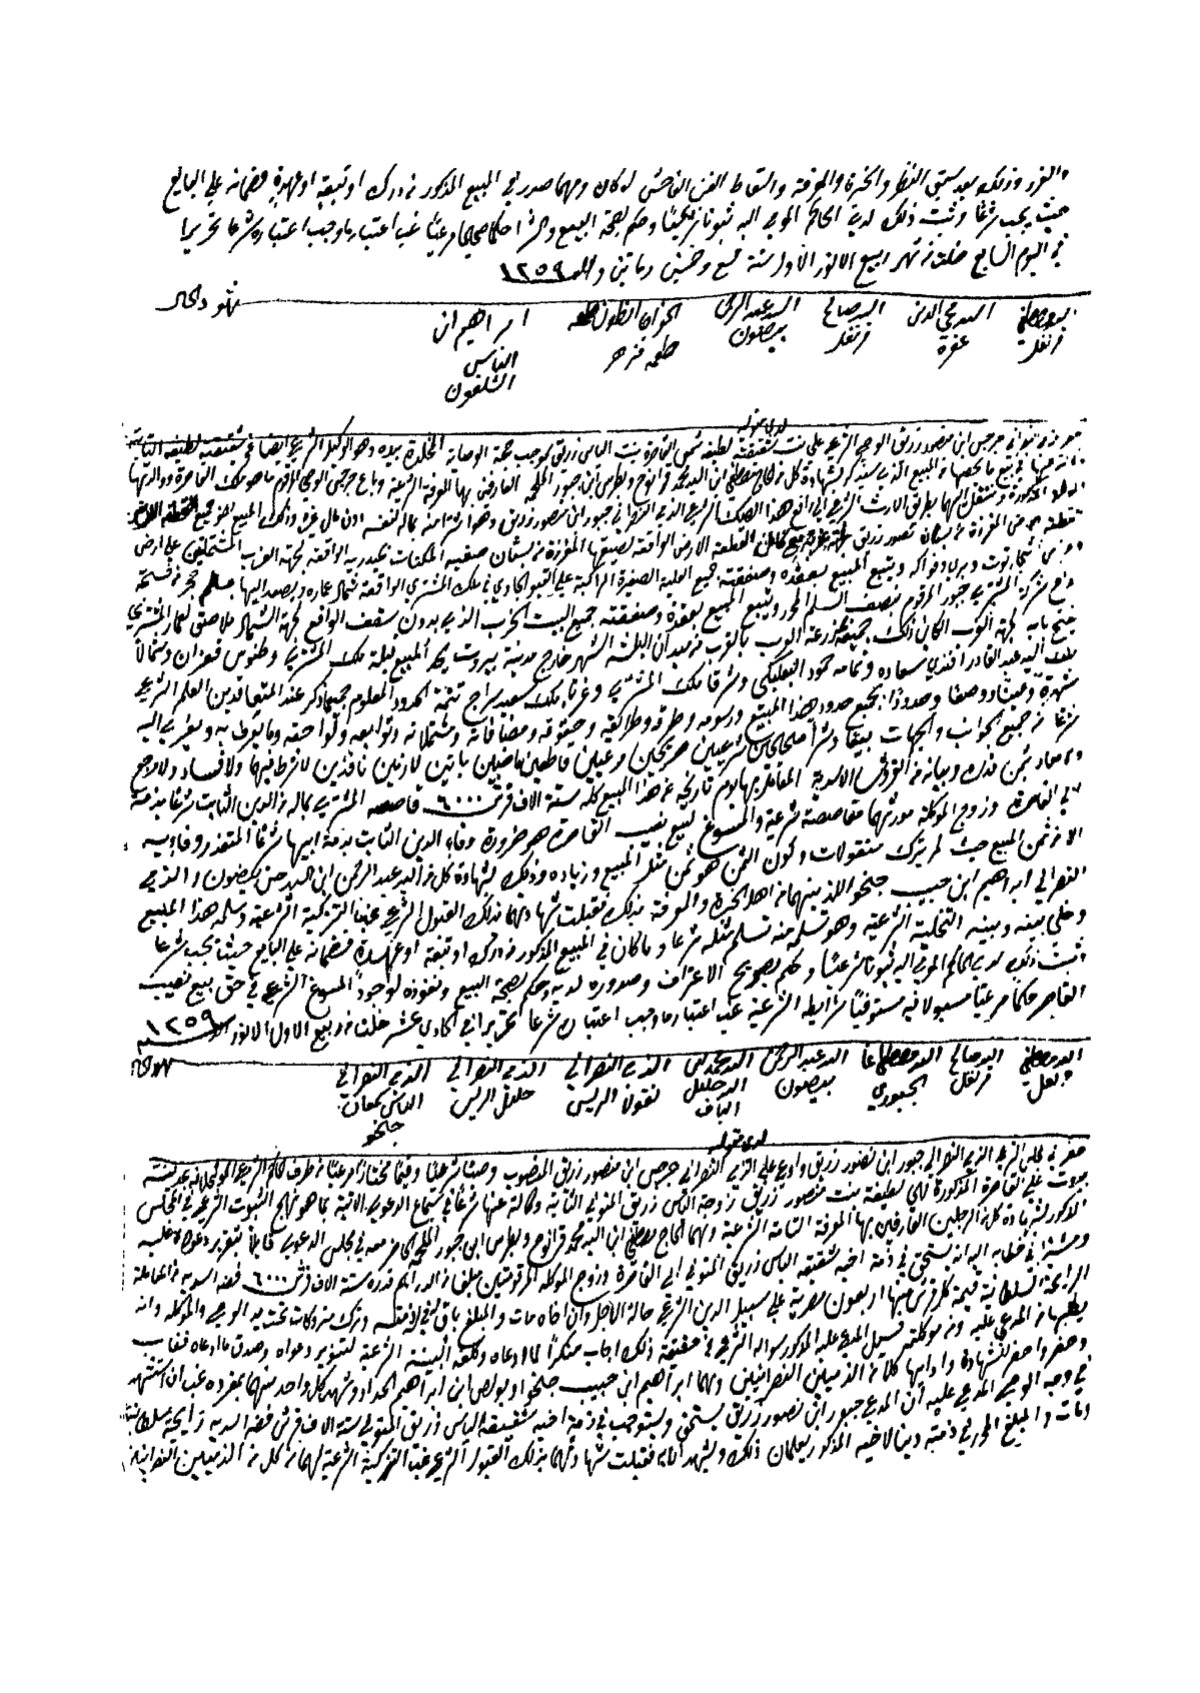 والغرر وذلك بعد سبق النظر والخبرة والمعرفة واسقاط الغبن الفاحش لو كان ومهما صدر في المبيع المذكور من درك او تبعة او عهدة فضمانه على البايع
حيث يجب شرعًا وثبت ذلك لدى الحاكم الموما اليه ثبوتا شرعيًا وحكم بصحة البيع والشرا حكمًا صحيحًا مرعيًا غب اعتبار ما وجب اعتباره شرعا تحريرا
في اليوم السابع خلت من شهر ربيع الانور الاول سنة تسع وخمسين ومائتين والف ١٢٥٩
شهود الحال
السيد مصطفى قرنفل
السيد محيي الدين غزة
السيد صالح قرنفل
السيد عبد الرحمن بيضون
الخواجا انطون طعمه فرح
ابراهيم ابن الياس الشلفون
لدى متوليه
جرجس ابن منصور زريق الوصي الشرعي على بنت شقيقته لطيفة القاصرة بنت الياس زريق بموجب حجة الوصاية المخلدة بيده وهو الوكيل الشرعي ايضا عن شقيقته لطيفة
في بيع ما يخصها من المبيع الذي سيذكر بشهادة كل من الحاج مصطفى ابن السيد محمد قرانوح وبطرس ابن جبور الملحمه العارفين بها المعرفة الشرعية وباع جرجس الوصي المرقوم ما هو ملك القاصرة ووالدتها
المذكورة ومنتقل اليهما بطريق الارث الشرعي الى رافع هذا الصك الشرعي الذمي النصراني جبور ابن منصور زريق وهو اشترا منه بماله لنفسه دون مال غيره وذلك المبيع هو جميع القطعة الارض
جميع القطعة الارض الواقعة
وتبع المبيع بعقده وصفقته جميع العلية الصغيرة الراكبة على القبو الجاري في ملك المشتري الواقعة شمال عماره ويصعد اليها بسلم حجر
المشتري جبور المرقوم بنصف السلم المحرر وتبع المبيع بعقده وصفقته جميع البيت الخرب الذي بدون سقف الواقع لجهة الشمال ملاصق لعمار المشتري
بابه لجهة الغرب الكاين ذلك جميعه بمزرعة العرب بالقرب من ميدان البلشه الشهير خارج مدينة بيروت يحد المبيع قبلة ملك المشتري وطنوس قعوران وشمالا
ملك السيد عبد القادر افندي سعاده وتمامه حمود البعلبكي وشرقا ملك المشتري وغربا ملك سعد سراج تتمة الحدود المعلوم جميع ما ذكر عند المتعاقدين العلم الشرعي
شهرة وحدودا بجميع حدود هذا المبيع ورسومه وطرقه وطرائقه وحقوقه ومضافاته ومشتملاته وتوابعه ولواحقه وما يعرف به ويعزى اليه
شرعًا من جميع الجوانب والجهات بيعًا وشرا صحيحين شرعيين صريحين مرعيين قاطعين ماضيين باتين لازمين نافذين لا شرط فيهما ولا فساد ولا رجوع
ثمن قدره وبيانه من القروش الاسدية المتعامل بها يوم تاريخه عن هذا المبيع كله ستة الاف قرش ٦٠٠٠ قاصصه المشتري بماله من الدين الثابت شرعًا بذمة
ابي القاصرة وزوج الموكلة مورثهما مقاصصة شرعية والمسوغ لبيع نصيب القاصرة هو ضرورة وفاء الدين الثابت بذمة ابيها شرعًا المتعذر وفاءه
الا من ثمن المبيع حيث لم يترك منقولات وكون الثمن هو ثمن مثل المبيع وزيادة وذلك بشهادة كل من السيد عبد الرحمن ابن السيد حسن بيضون والذمي
النصراني ابراهيم ابن حبيب جلخو اللذين هما من اهل الخبرة والمعرفة بذلك فقبلت شهادتهما بذلك القبول الشرعي غب التزكية الشرعية وسلمه هذا المبيع
وخلى بينه وبينه التخلية الشرعية وهو تسلمه منه تسلم مثله شرعا وما كان في المبيع المذكور من درك او تبعة او عهدة فضمانه على البايع حيث يجب شرعا
ثبت ذلك لدى الحاكم الموما اليه ثبوتا شرعيا وحكم بصريح الاعتراف وصدوره لديه وحكم بصحة البيع ونفوذه لوجود المسوغ الشرعي في حق بيع نصيب
القاصر حكمًا مرعيًا مسبولا فيه مستوفيًا شرايطه الشرعية غب اعتبار ما وجب اعتباره شرعا تحريرا في الحادي عشر خلت من ربيع الاول الانور سنة ١٢٥٩
شهود الحال
السيد مصطفى قرنفل
السيد صالح قرنفل
السيد مصطفى اغا الجبوري
السيد عبد الرحمن بيضون
السيد خليل البواب
الذمي النصراني نقولا الريس
الذمي النصراني خليل الريس
الذمي النصراني الياس كنعان جلخو
لدى متوليه
حضر في مجلس الشرع الذمي النصراني جبور ابن منصور زريق وادعى على الذمي النصراني جرجس ابن منصور زريق المنصوب وصيًا شرعيًا وقيمًا مختارًا مرعيًا من طرف الحاكم الشرعي
بيروت على القاصرة المذكورة لطيفة بنت منصور زريق زوجة الياس زريق المتوفى الثابتة وكالته عنها شرعًا في سماع الدعوى الاتية بما هو نهج الثبوت الشرعي في المجلس
المذكور بشهادة كل من الرجلين العارفين بها المعرفة التامة الشرعية وهما الحاج مصطفى ابن السيد محمد قرانوح وبطرس ابن جبور الملحمه الحاضر معه في مجلس الدعوى قايلا بتقرير دعواه عليه
ومشيرا في خطابه اليه انه يستحق في ذمة اخيه شقيقه الياس زريق المتوفى ابي القاصرة وزوج الموكلة المرقومتين مبلغا من الدراهم قدره ستة الاف قرش ٦٠٠٠ فضة اسدية من المعاملة
الرايجة السلطانية قيمة كل قرش منها اربعون مصرية على سبيل الدين الشرعي حالة الاجل وان اخاه مات والمبلغ باق في ذمته وترك متروكات تحت يد الوصي والموكلة وانه
يطلبها من المدعى عليه ومن موكلته فسيل المدعى عليه المذكور سواله الشرعي عن حقيقة ذلك اجاب منكرًا لما ادعاه وكلفه البينة الشرعية لتنوير دعواه وصدق ما ادعاه فغاب
وحضر واحضر للشهادة وادايها كلا من الذميين النصرانيين وهما ابراهيم ابن حبيب جلخو وبولص ابن ابراهيم الحداد وشهد كل واحد منهما بمفرده غب ان استشهد
في وجه الوصي المدعى عليه أن المدعي جبور ابن منصور زريق يستحق ويستوجب في ذمة اخيه شقيقه الياس زريق المتوفى ستة الاف قرش فضة اسدية رايجة سلطانية
ومات والمبلغ المحرر في ذمته دينا لاخيه المذكور يعلمان ذلك ويشهدان به فقبلت شهادتهما بذلك القبول الشرعي غب التزكية الشرعية لهما من كل من الذميين النصرانيين